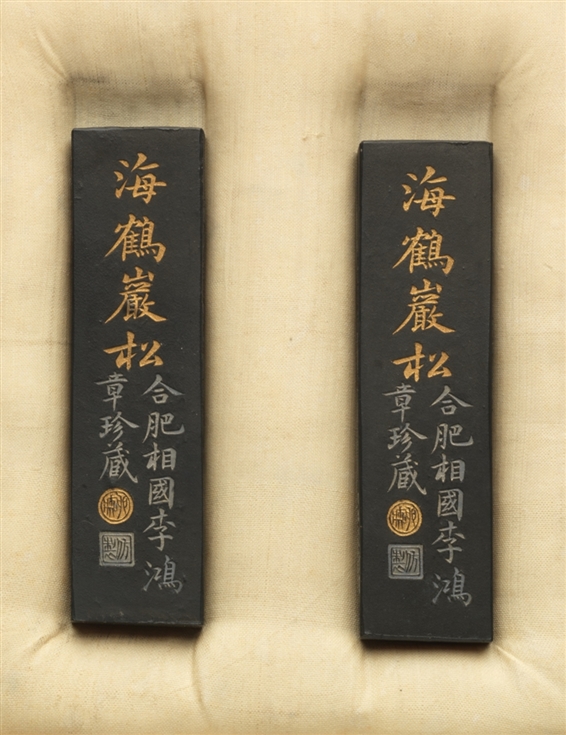 海鶴巖松
合肥相國李鴻
章珍藏
仿製
海鶴巖松
合肥相國李鴻
章珍藏
仿製